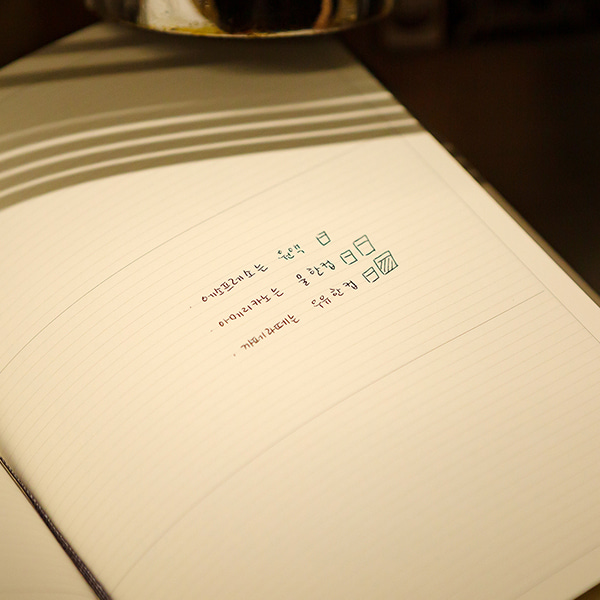 · 에스프레소는 원액
· 아메리카노는 물 한컵
· 까페라떼는 우유 한컵